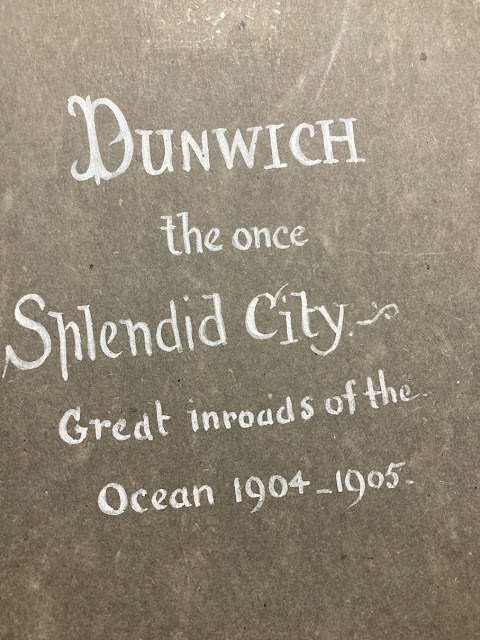 DUNWICH
the once
Splendid City.~
Great inroads of the
Ocean 1904-1905.